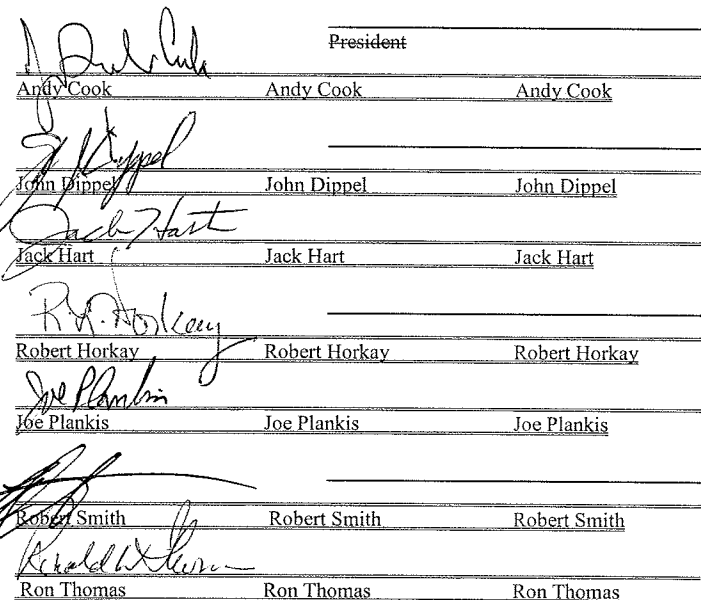 President
Andy Cook Andy Cook Andy Cook
John Dippel John Dippel John Dippel
Jack Hart
Jack Hart Jack Hart Jack Hart
Robert Horkay Robert Horkay Robert Horkay
Joe Plankis Joe Plankis Joe Plankis
Robert Smith Robert Smith Robert Smith
Ron Thomas Ron Thomas Ron Thomas